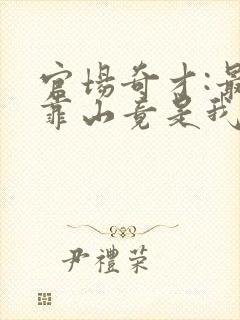 官场奇才:最
靠山竟是我
尹禮荣